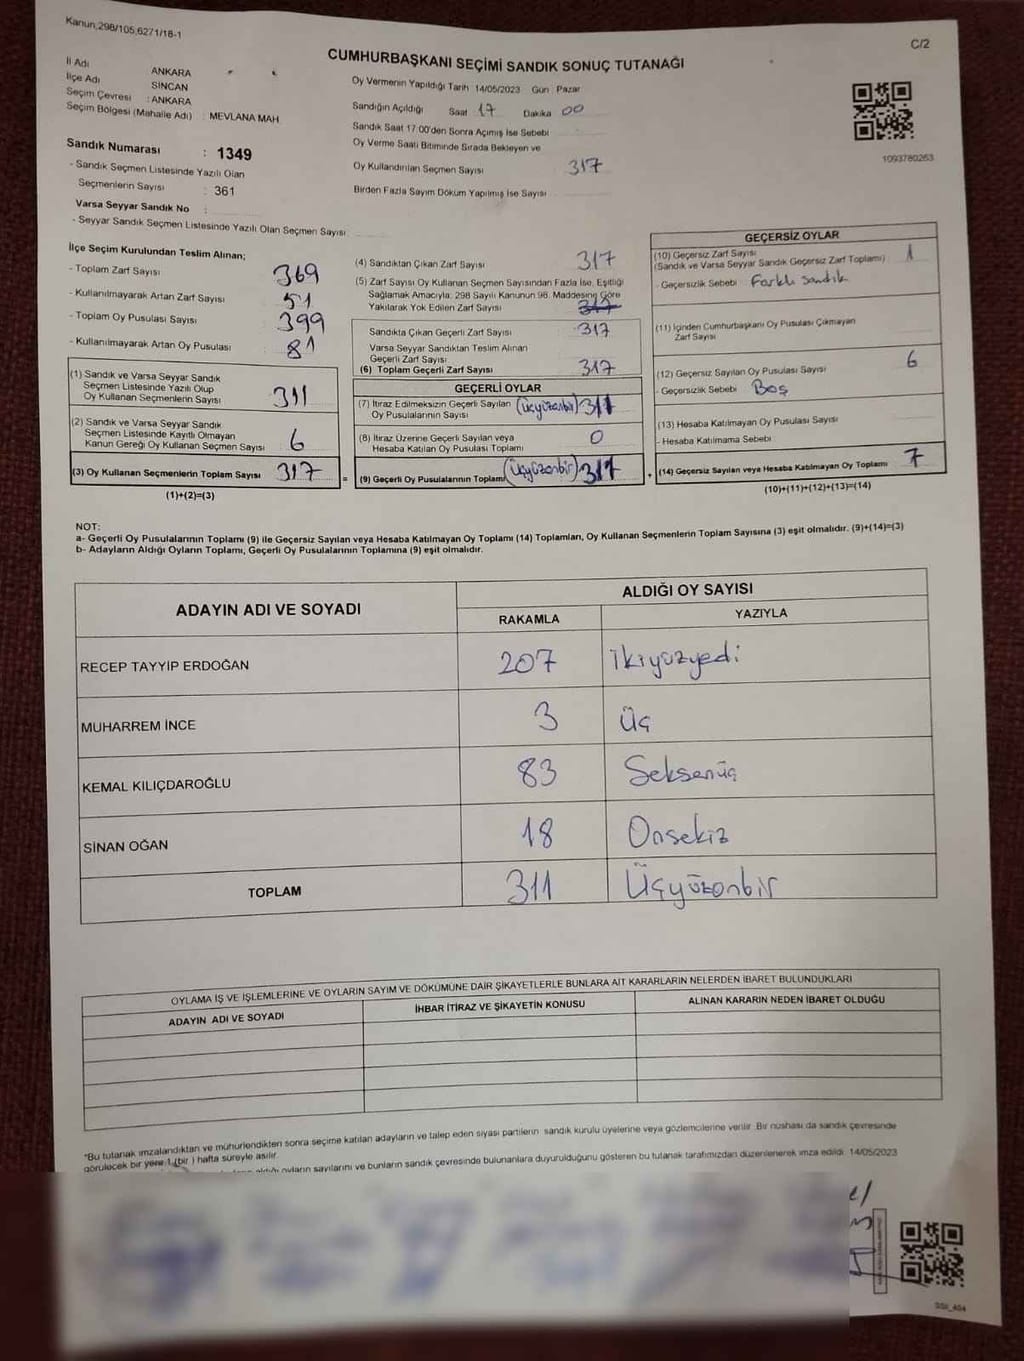 Kanun,298/105,6271/18-1
C/2
CUMHURBAŞKANI SEÇİMİ SANDIK SONUÇ TUTANAĞI
İl Adı ANKARA
İlçe Adı SİNCAN
Seçim Çevresi : ANKARA
Seçim Bölgesi (Mahalle Adı) : MEVLANA MAH
Oy Vermenin Yapıldığı Tarih 14/05/2023 Gün Pazar
Sandığın Açıldığı Saat 17 Dakika 00
Sandık Saat 17:00'den Sonra Açımış İse Sebebi
Oy Verme Saati Bitiminde Sırada Bekleyen ve
Oy Kullandırılan Seçmen Sayısı 317
Birden Fazla Sayım Döküm Yapılmış İse Sayısı
1093780263
Sandık Numarası : 1349
- Sandık Seçmen Listesinde Yazılı Olan
Seçmenlerin Sayısı : 361
Varsa Seyyar Sandık No :
- Seyyar Sandık Seçmen Listesinde Yazılı Olan Seçmen Sayısı
İlçe Seçim Kurulundan Teslim Alınan;
- Toplam Zarf Sayısı 369
- Kullanılmayarak Artan Zarf Sayısı 51
- Toplam Oy Pusulası Sayısı 399
- Kullanılmayarak Artan Oy Pusulası 81
(1) Sandık ve Varsa Seyyar Sandık
Seçmen Listesinde Yazılı Olup
Oy Kullanan Seçmenlerin Sayısı 311
(2) Sandık ve Varsa Seyyar Sandık
Seçmen Listesinde Kayıtlı Olmayan
Kanun Gereği Oy Kullanan Seçmen Sayısı 6
(3) Oy Kullanan Seçmenlerin Toplam Sayısı 317 =
(1)+(2)=(3)
(4) Sandıktan Çıkan Zarf Sayısı 317
(5) Zarf Sayısı Oy Kullanan Seçmen Sayısından Fazla İse, Eşitliği
Sağlamak Amacıyla; 298 Sayılı Kanunun 98. Maddesine Göre
Yakılarak Yok Edilen Zarf Sayısı 317
Sandıkta Çıkan Geçerli Zarf Sayısı 317
Varsa Seyyar Sandıktan Teslim Alınan
Geçerli Zarf Sayısı
(6) Toplam Geçerli Zarf Sayısı 317
GEÇERLİ OYLAR
(7) İtiraz Edilmeksizin Geçerli Sayılan (Üçyüzonbir) 311
Oy Pusulalarının Sayısı
(8) İtiraz Üzerine Geçerli Sayılan veya 0
Hesaba Katılan Oy Pusulası Toplamı
(9) Geçerli Oy Pusulalarının Toplamı (Üçyüzonbir) 311 +
GEÇERSİZ OYLAR
(10) Geçersiz Zarf Sayısı 1
(Sandık ve Varsa Seyyar Sandık Geçersiz Zarf Toplamı)
- Geçersizlik Sebebi Farklı sandık
(11) İçinden Cumhurbaşkanı Oy Pusulası Çıkmayan
Zarf Sayısı
(12) Geçersiz Sayılan Oy Pusulası Sayısı 6
- Geçersizlik Sebebi Boş
(13) Hesaba Katılmayan Oy Pusulası Sayısı
- Hesaba Katılmama Sebebi
(14) Geçersiz Sayılan veya Hesaba Katılmayan Oy Toplamı 7
(10)+(11)+(12)+(13)=(14)
NOT:
a- Geçerli Oy Pusulalarının Toplamı (9) ile Geçersiz Sayılan veya Hesaba Katılmayan Oy Toplamı (14) Toplamları, Oy Kullanan Seçmenlerin Toplam Sayısına (3) eşit olmalıdır. (9)+(14)=(3)
b- Adayların Aldığı Oyların Toplamı, Geçerli Oy Pusulalarının Toplamına (9) eşit olmalıdır.
ADAYIN ADI VE SOYADI
ALDIĞI OY SAYISI
RAKAMLA YAZIYLA
RECEP TAYYİP ERDOĞAN 207 İkiyüzyedi
MUHARREM İNCE 3 Üç
KEMAL KILIÇDAROĞLU 83 Seksenüç
SİNAN OĞAN 18 Onsekiz
TOPLAM 311 Üçyüzonbir
OYLAMA İŞ VE İŞLEMLERİNE VE OYLARIN SAYIM VE DÖKÜMÜNE DAİR ŞİKAYETLERLE BUNLARA AİT KARARLARIN NELERDEN İBARET BULUNDUKLARI
ADAYIN ADI VE SOYADI İHBAR İTİRAZ VE ŞİKAYETİN KONUSU ALINAN KARARIN NEDEN İBARET OLDUĞU
"Bu tutanak imzalandıktan ve mühürlendikten sonra seçime katılan adayların ve talep eden siyasi partilerin sandık kurulu üyelerine veya gözlemcilerine verilir. Bir nüshası da sandık çevresinde
görülecek bir yere 1 (bir) hafta süreyle asılır.
oyların sayılarını ve bunların sandık çevresinde bulunanlara duyurulduğunu gösteren bu tutanak tarafımızdan düzenlenerek imza edildi. 14/05/2023